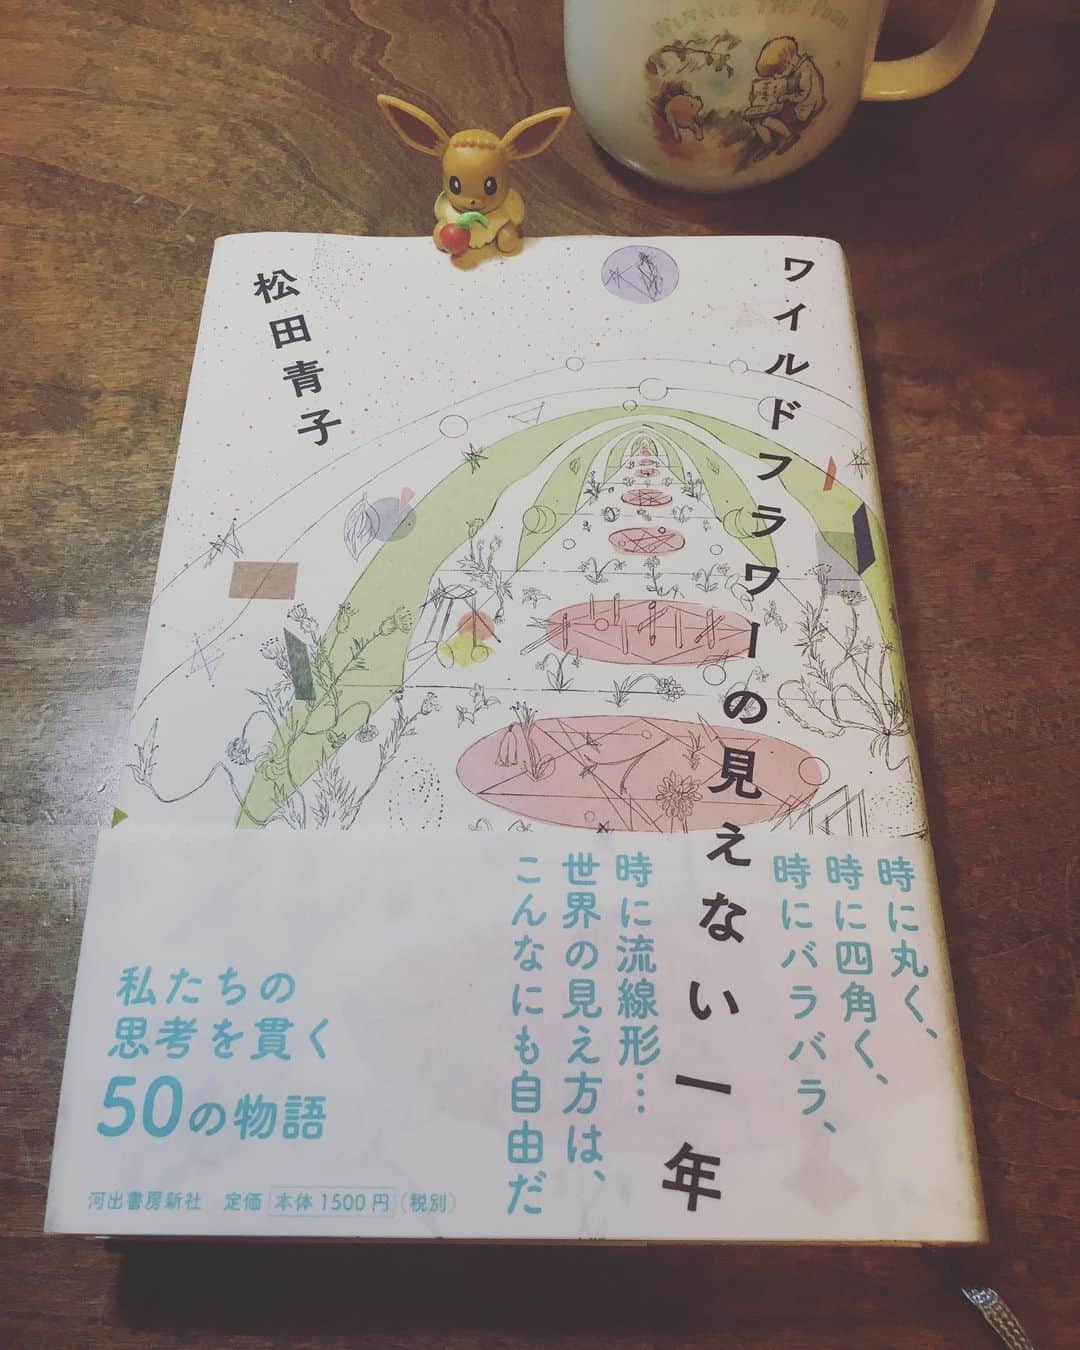 WINNIE THE POOH
ワイルドフラワーの見えない一年
松田青子
時に丸く、
時に四角く、
時にバラバラ、
時に流線形…
世界の見え方は、
こんなにも自由だ
私たちの
思考を貫く
50の物語
河出書房新社 定価 本体1500円（税別）